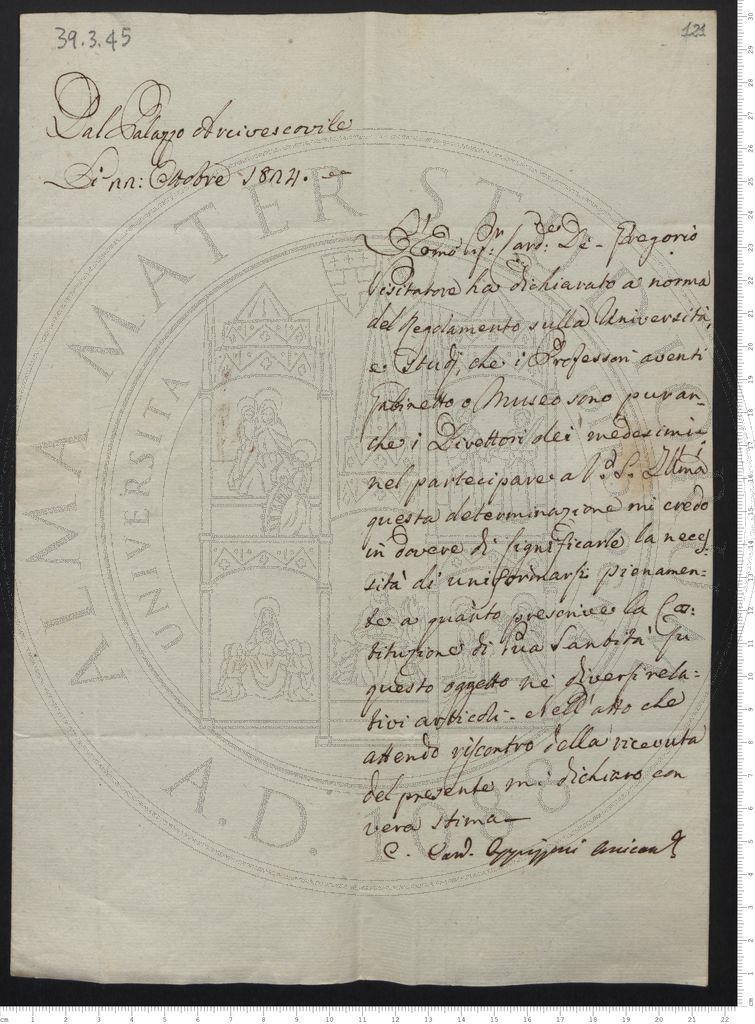 39.3.45
121
Dal Palazzo Arcivescovile
Li 22: Ottobre 1824.
L'Emo Sigr: Carde: De-Gregorio
Visitatore ha dichiarato a norma
del Regolamento sulla Università,
e Studj, che i Professori aventi
Gabinetto o Museo sono puran-
che i Direttori dei medesimi:
nel partecipare a V.S. Illma
questa determinazione mi credo
in dovere di significarle la neces-
sità di uniformarsi pienamen-
te a quanto prescrive la Co-
stituzione di Sua Santità Su
questo oggetto nei diversi rela-
tivi articoli - e nell'atto che
attendo riscontro della ricevuta
del presente mi dichiaro con
vera stima
C. Card. Oppizzoni Arcicanc
ALMA MATER STUDIORUM
UNIVERSITÀ
A.D. 1088